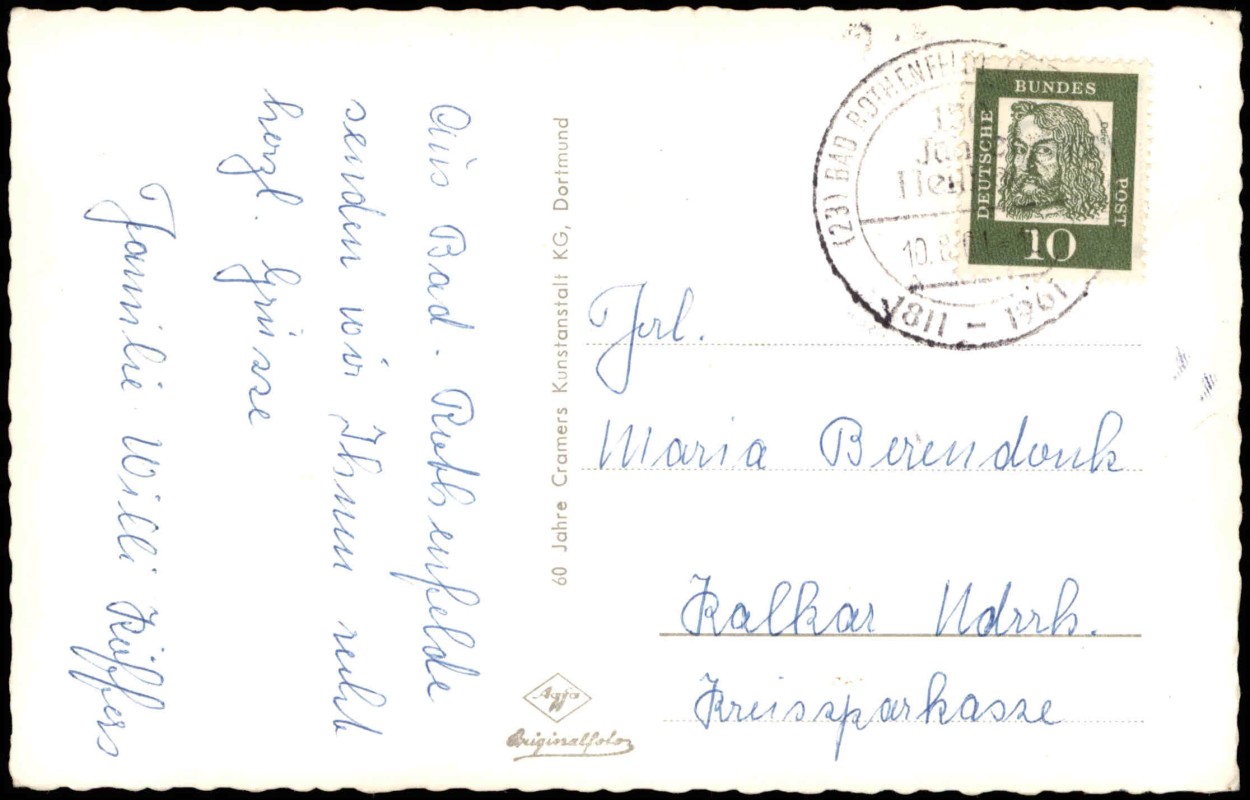 Aus Bad-Rothenfelde
senden wir Ihnen recht
herzl. Grüsse
Familie Willi Küppers
60 Jahre Cramers Kunstanstalt KG, Dortmund
Agfa
Originalfoto
(23) BAD ROTHENFELDE
150
Jahre
10.8.61
1811 - 1961
DEUTSCHE
BUNDES
POST
Dürer
10
Frl.
Maria Berendonk
Kalkar Ndrrh.
Kreissparkasse